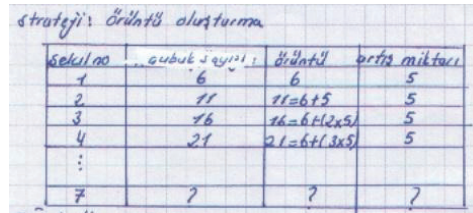 strateji: örüntü oluşturma
şekil no çubuk sayısı: örüntü artış miktarı
1 6 6 5
2 11 11=6+5 5
3 16 16=6+(2x5) 5
4 21 21=6+(3x5) 5
⋮
7 ? ? ?